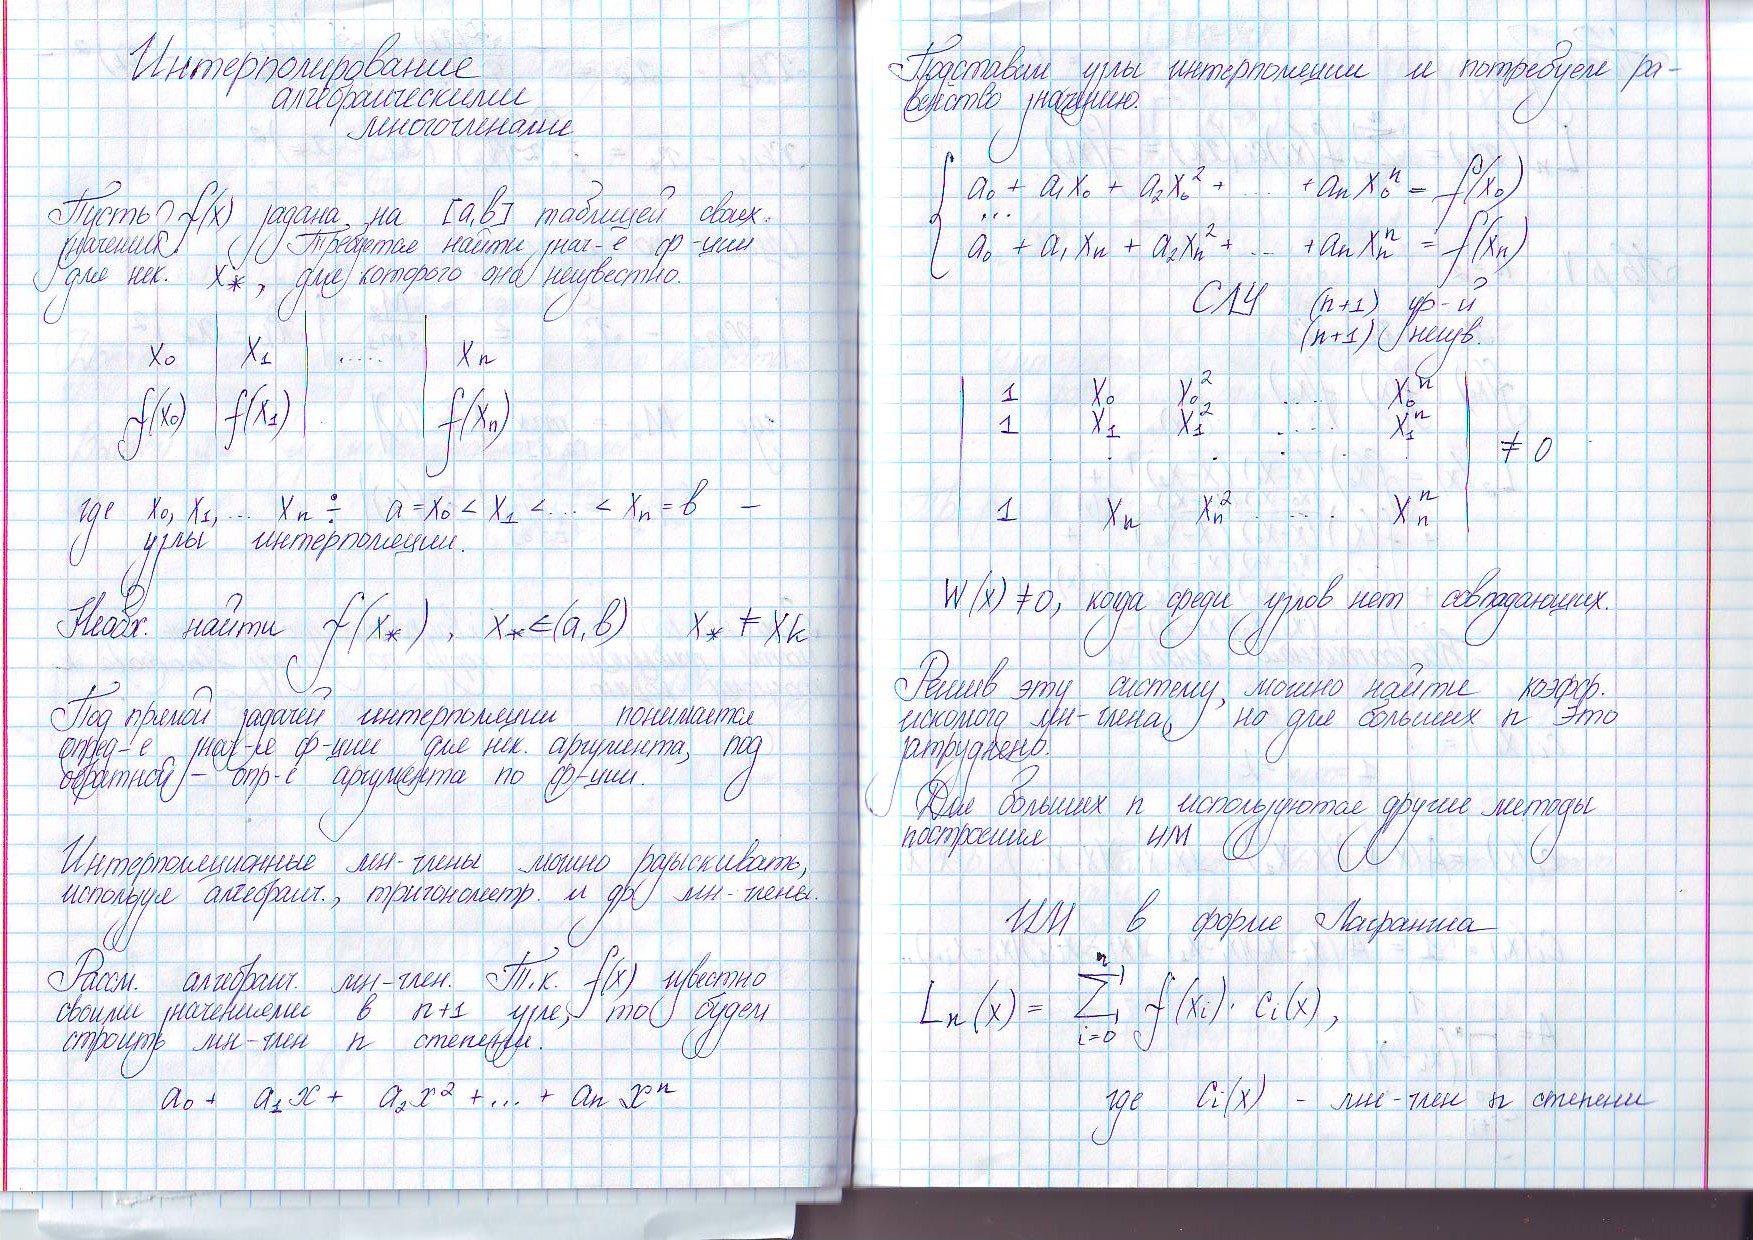 Интерполирование
алгебраическими
многочленами
Пусть f(x) задана на [a,b] таблицей своих
значений. Требуется найти знач-е ф-ции
для нек. x*, для которого оно неизвестно.
x₀ | x₁ | ..... | xₙ
f(x₀) | f(x₁) | . | f(xₙ)
где x₀, x₁, ... xₙ ÷ a = x₀ < x₁ < ... < xₙ = b –
узлы интерполяции.
Необх. найти f(x*), x* ∈ (a,b) x* ≠ xk
Под прямой задачей интерполяции понимается
опред-е знач-я ф-ции для нек. аргумента, под
обратной – опр-е аргумента по ф-ции.
Интерполяционные мн-члены можно разыскивать,
используя алгебраич., тригонометр. и др мн-члены.
Рассм. алгебраич. мн-член. Т.к. f(x) известно
своими значениями в n+1 узле, то будем
строить мн-член n степени.
a₀ + a₁x + a₂x² + ... + aₙxⁿ
Подставим узлы интерполяции и потребуем ра-
венство значению.
{ a₀ + a₁x₀ + a₂x₀² + ... + aₙx₀ⁿ = f(x₀)
...
a₀ + a₁xₙ + a₂xₙ² + ... + aₙxₙⁿ = f(xₙ)
СЛУ (n+1) ур-й
(n+1) неизв.
| 1 x₀ x₀² .... x₀ⁿ |
| 1 x₁ x₁² .... x₁ⁿ |
. . . . . ≠ 0
| 1 xₙ xₙ² .... xₙⁿ |
W(x) ≠ 0, когда среди узлов нет совпадающих.
Решив эту систему, можно найти коэфф.
искомого мн-члена, но для больших n это
затруднено.
Для больших n используются другие методы
построения ИМ
ИМ в форме Лагранжа
Lₙ(x) = ∑ⁿᵢ₌₀ f(xᵢ) · cᵢ(x),
где cᵢ(x) – мн-член n степени